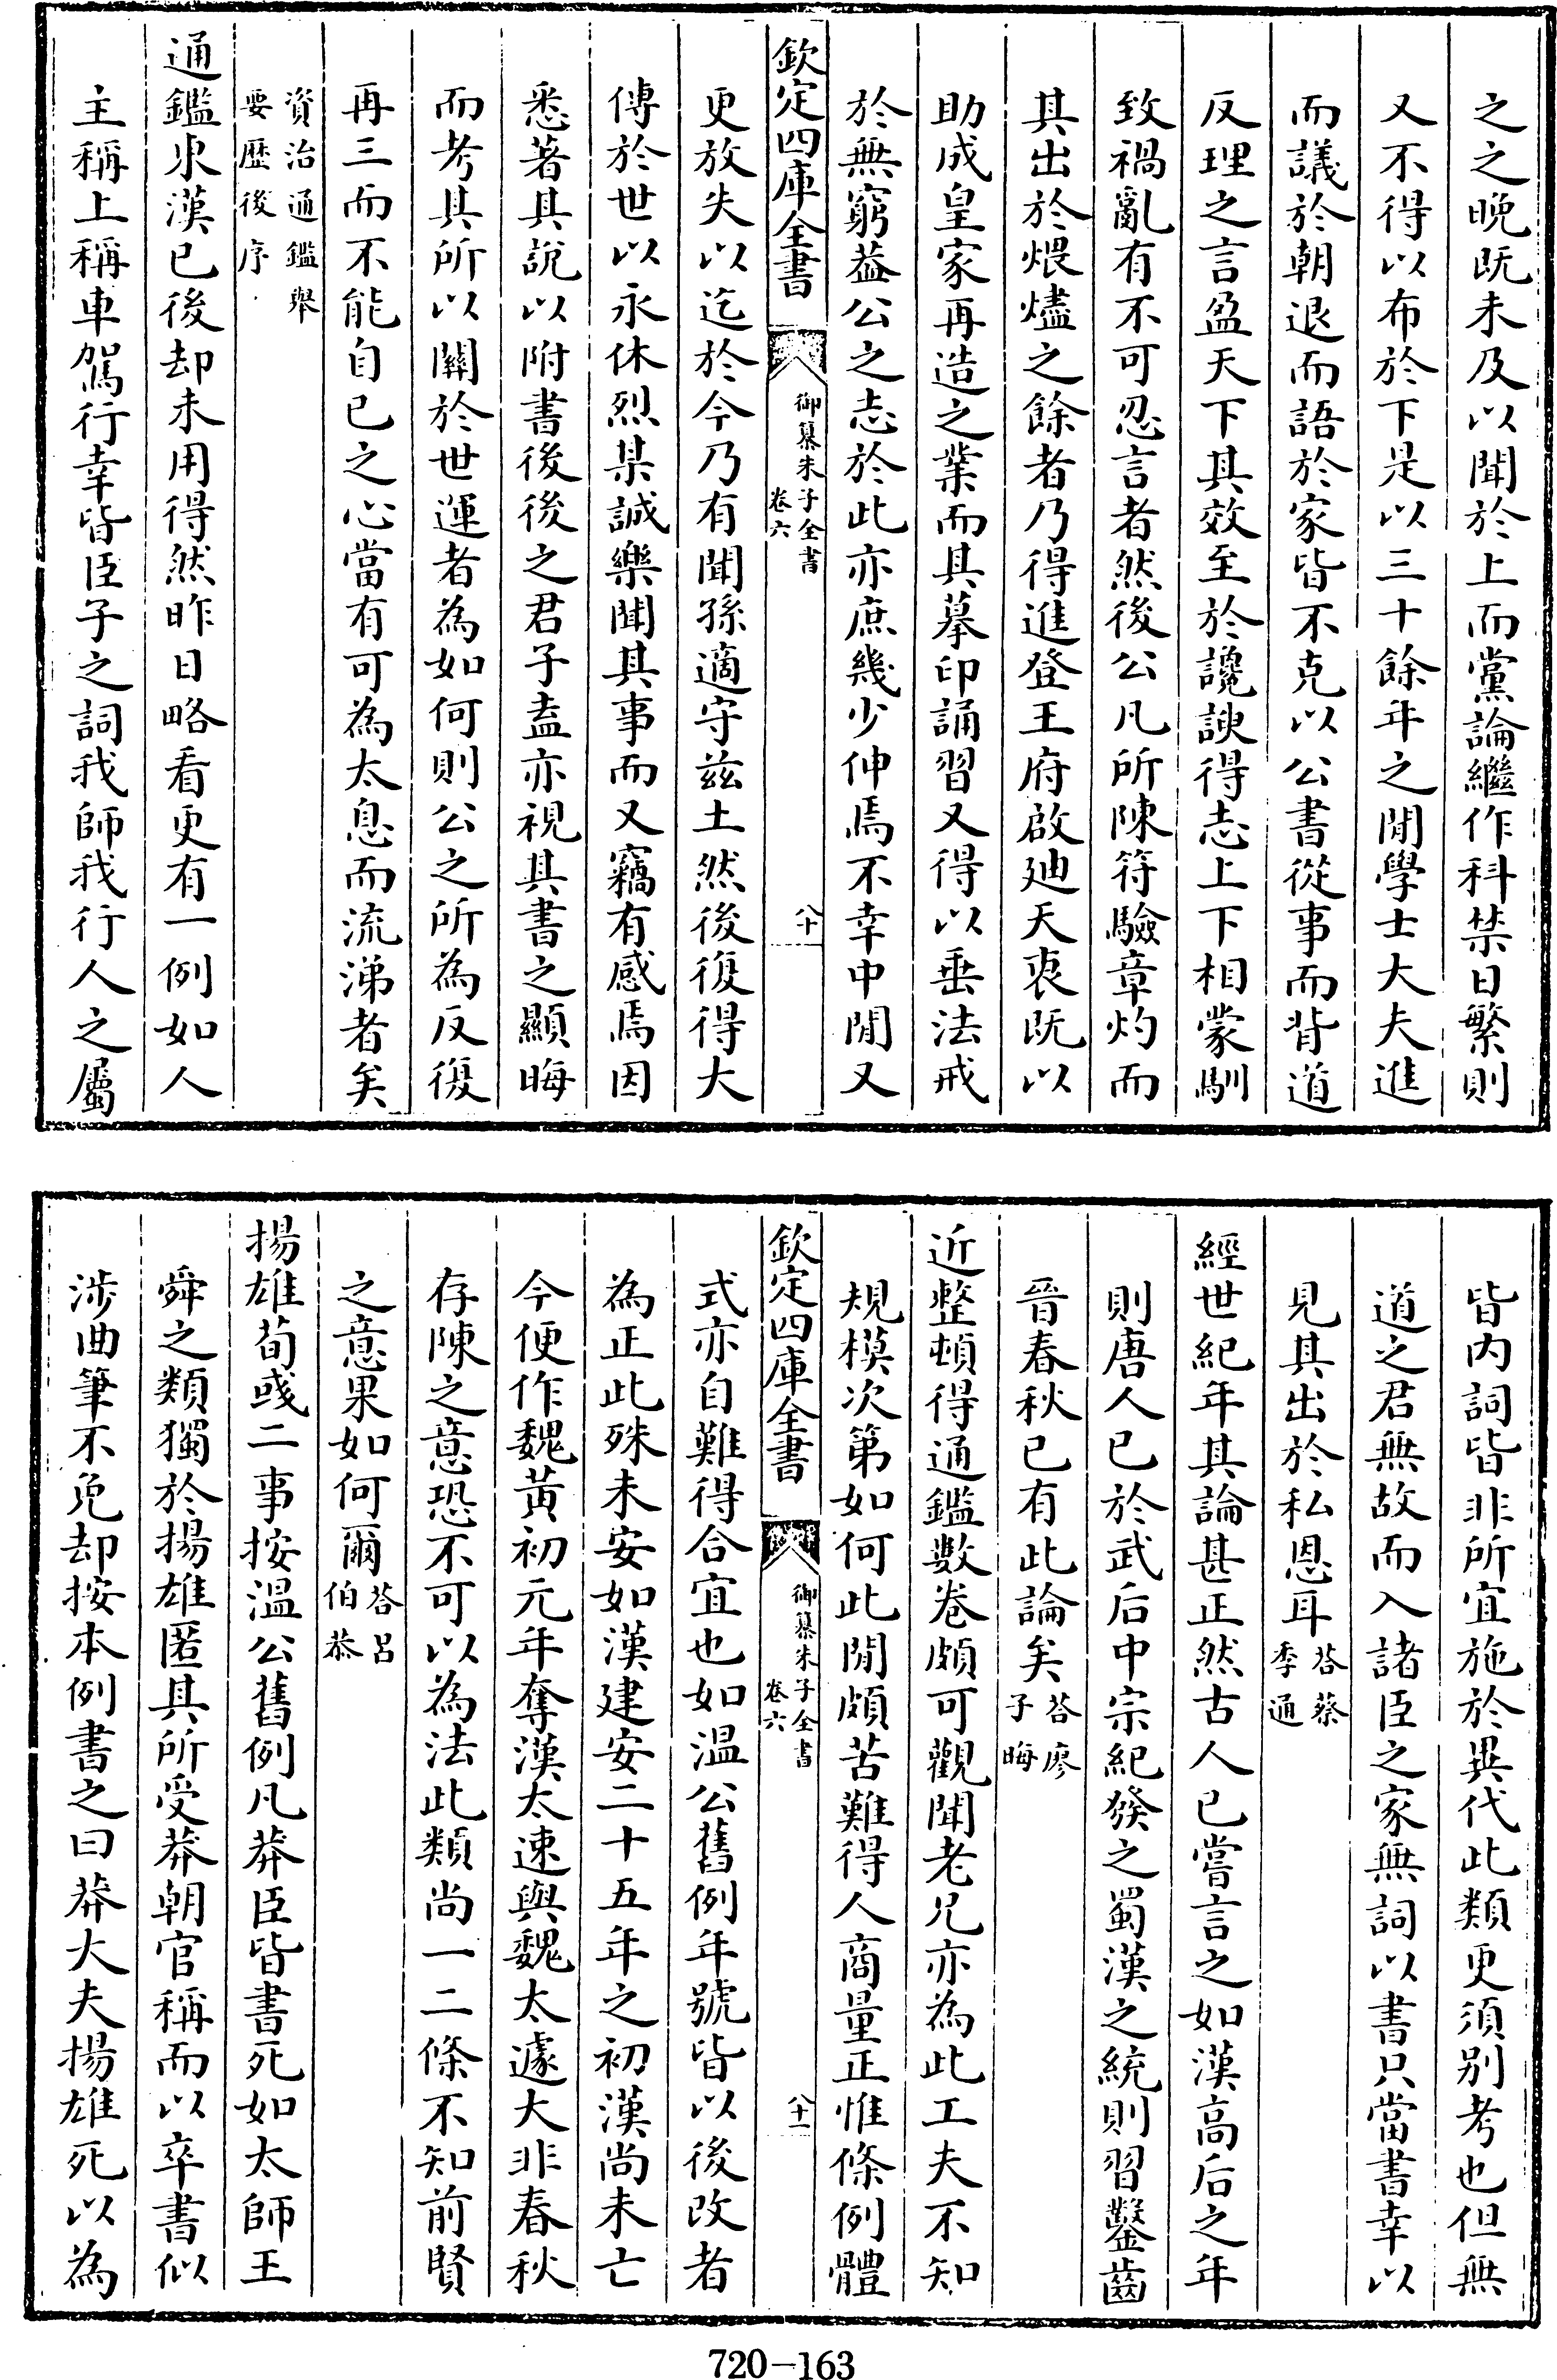 之之晚既未及以聞於上而黨論繼作科禁日繁則
又不得以布於下是以三十餘年之閒學士大夫進
而議於朝退而語於家皆不克以公書從事而背道
反理之言盈天下其效至於讒諛得志上下相蒙馴
致禍亂有不可忍言者然後公凡所陳符驗章灼而
其出於煨燼之餘者乃得進登王府啟廸天衷既以
助成皇家再造之業而其摹印誦習又得以垂法戒
於無窮葢公之志於此亦庶幾少伸焉不幸中閒又
欽定四庫全書
御纂朱子全書
卷六
八十
更放失以迄於今乃有聞孫適守兹土然後復得大
傳於世以永休烈某誠樂聞其事而又竊有感焉因
悉著其說以附書後後之君子盍亦視其書之顯晦
而考其所以關於世運者為如何則公之所為反復
再三而不能自已之心當有可為太息而流涕者矣
資治通鑑舉
要歷後序
通鑑東漢已後却未用得然昨日略看更有一例如人
主稱上稱車駕行幸皆臣子之詞我師我行人之屬
皆内詞皆非所宜施於異代此類更須别考也但無
道之君無故而入諸臣之家無詞以書只當書幸以
見其出於私恩耳
荅蔡
季通
經世紀年其論甚正然古人已嘗言之如漢高后之年
則唐人已於武后中宗紀發之蜀漢之統則習鑿齒
晉春秋已有此論矣
荅廖
子晦
近整頓得通鑑數卷頗可觀聞老兄亦為此工夫不知
規模次第如何此閒頗苦難得人商量正惟條例體
欽定四庫全書
御纂朱子全書
卷六
八十一
式亦自難得合宜也如温公舊例年號皆以後改者
為正此殊未安如漢建安二十五年之初漢尚未亡
今便作魏黄初元年奪漢太速與魏太遽大非春秋
存陳之意恐不可以為法此類尚一二條不知前賢
之意果如何爾
荅呂
伯恭
揚雄荀彧二事按温公舊例凡莽臣皆書死如太師王
舜之類獨於揚雄匿其所受莽朝官稱而以卒書似
涉曲筆不免却按本例書之曰莽大夫揚雄死以為
720-163